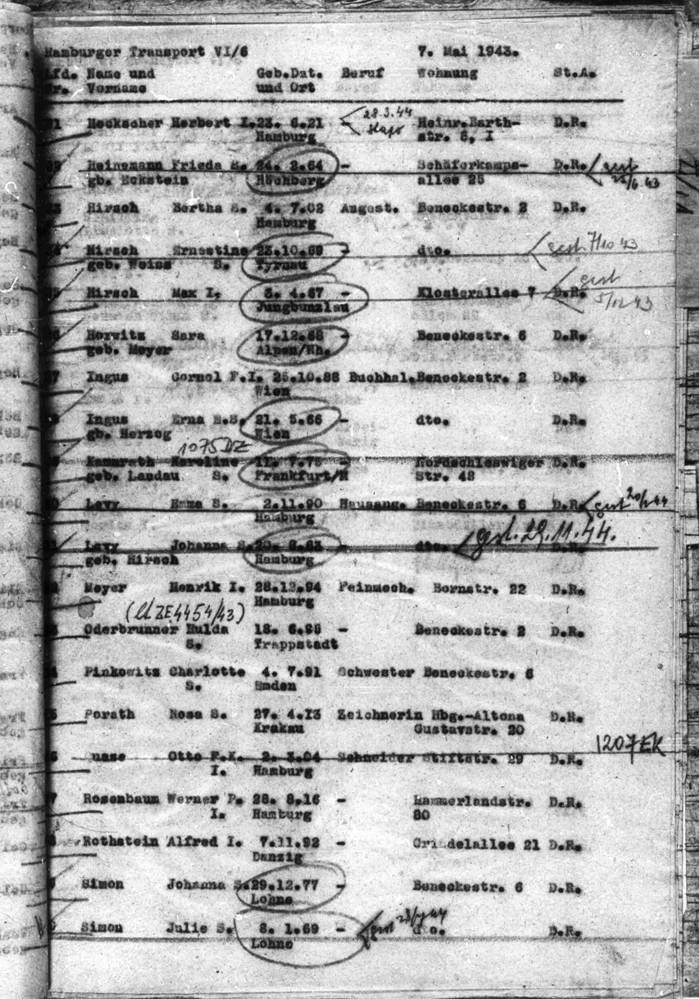 Hamburger Transport VI/6 7. Mai 1943.
Lfd. Name und Geb.Dat. Beruf Wohnung St.A.
Nr. Vorname und Ort
28.3.44
21 Heckscher Herbert I.23. 6.21 Heinr.Barth- D.R.
Hamburg str. 8, I
Heinemann Frieda S. 24. 2.64 - Schäferkamps- D.R. gest
gb. Eckstein Höchberg allee 25 43
23 Hirsch Bertha S. 4. 7.02 Angest. Beneckestr. 2 D.R.
Hamburg
Hirsch Ernestine 23.10.69 - dto. gest. 7/10 43
geb. Weiss S. Tyrnau
gest
Hirsch Max I. 3. 4.67 - Klosterallee 7 D.R.
Jungbunzlau 43
Horwitz Sara 17.12.68 - Beneckestr. 6 D.R.
geb. Meyer Alpen/Rh.
27 Ingus Cornel F.I. 25.10.88 Buchhal. Beneckestr. 2 D.R.
Wien
Ingus Erna B.S. 21. 5.66 - dto. D.R.
gb. Herzog Wien
1075 DZ
Kamerath Karoline 11. 7.75 - Nordschleswiger D.R.
geb. Landau S. Frankfurt/M Str. 48
Levy Emma S. 2.11.90 Hausang. Beneckestr. 6 D.R. gest 44
Hamburg
Levy Johanna S. 20. 6.63 - dto. gest. 29.11.44.
geb. Hirsch Hamburg
Meyer Henrik I. 28.12.94 Feinmech. Bornstr. 22 D.R.
Hamburg
4454/43)
Oderbrunner Hulda 18. 6.86 - Beneckestr. 2 D.R.
S. Trappstadt
Pinkowitz Charlotte 4. 7.91 Schwester Beneckestr. 6
S. Emden
Porath Rosa S. 27. 4.13 Zeichnerin Hbg.-Altona D.R.
Krakau Gustavstr. 20
1207 EK
Quase Otto F.K. 2. 3.04 Schneider Stiftstr. 29 D.R.
I. Hamburg
Rosenbaum Werner P. 28. 8.16 - Hammerlandstr. D.R.
I. Hamburg 80
Rothstein Alfred I. 7.11.92 - Grindelallee 21 D.R.
Danzig
Simon Johanna S.29.12.77 - Beneckestr. 6 D.R.
Lohne
Simon Julie S. 8. 1.69 - gest 44 dto. D.R.
Lohne